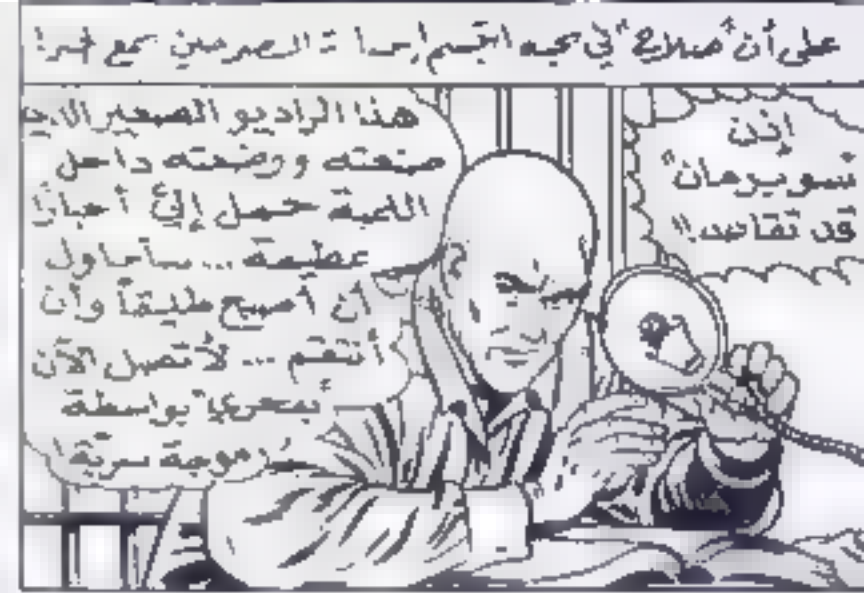 على أن "صلاح" في سجنه ابتسم سمع خبرا
إذن
سوبرمان"
قد تقاعد!!
هذا الراديو الصغير الذي
صنعته ووضعته داخل
اللمبة حمل إليّ أخبارًا
عظيمة ... سأحاول
أن أصبح طليقاً وأن
أنتقم ... لأتصل الآن
بواسطة
موجة سريّة!